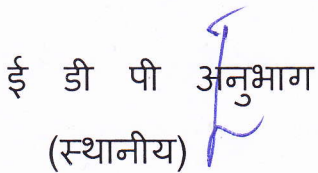 ई डी पी अनुभाग
(स्थानीय)